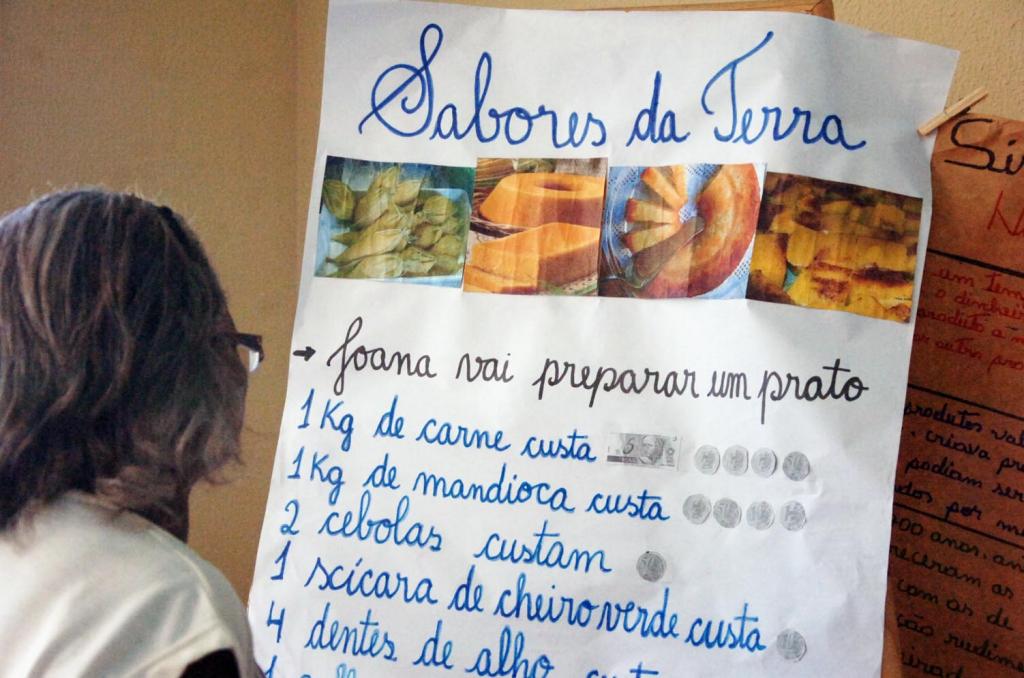 Sabores da Terra
→ Joana vai preparar um prato
1 Kg de carne custa 5
1 Kg de mandioca custa
2 cebolas custam
1 scícara de cheiro verde custa
4 dentes de alho
1
Si
um
o dinhei
produto a
produtos val
criava pr
podiam ser
dos por m
anos, an
receram as
com as de
ção rudime